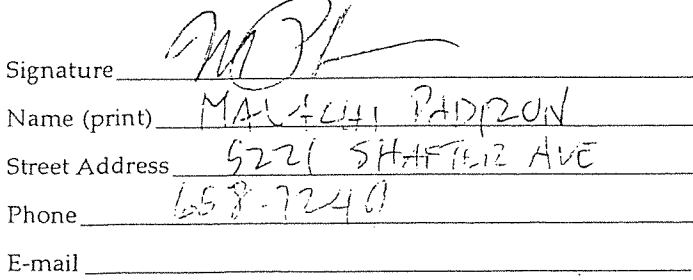 Signature
Name (print) MALACHI PADRON
Street Address 5221 SHAFTER AVE
Phone 658-7240
E-mail